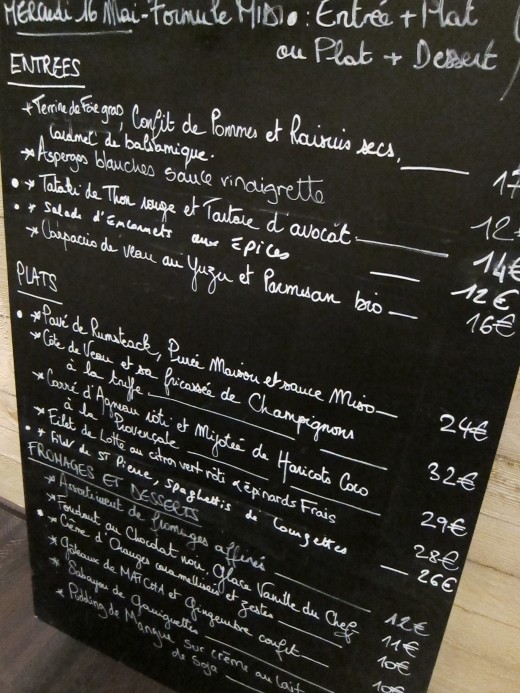 MERCREDI 16 Mai - Formule MIDI • : Entrée + Plat
ou Plat + Dessert
ENTREES
* Terrine de Foie gras, Confit de Pommes et Raisins secs,
Caramel de balsamique. 17
* Asperges blanches sauce vinaigrette 12
• * Tataki de Thon rouge et Tartare d'avocat 14€
• * Salade d'Encornets aux Epices 12€
* Carpaccio de veau au Yuzu et Parmesan bio 16€
PLATS
• * Pavé de Rumsteack, Purée Maison et sauce Miso 24€
* Côte de Veau et sa fricassée de Champignons
à la truffe 32€
* Carré d'Agneau rôti et Mijotée de Haricots Coco
à la Provençale 29€
* Filet de Lotte au citron vert rôti & épinards Frais 28€
• * Filet de St Pierre, spaghettis de Courgettes 26€
FROMAGES ET DESSERTS
* Assortiment de fromages affinés 12€
* Fondant au Chocolat noir, glace Vanille du Chef 11€
• * Crème d'Oranges caramélisées et zestes 10€
* Gâteaux de MATCHA et Gingembre confit 10€
* Sabayon de Gariguettes
* Pudding de Mangue sur crème au lait
de soja